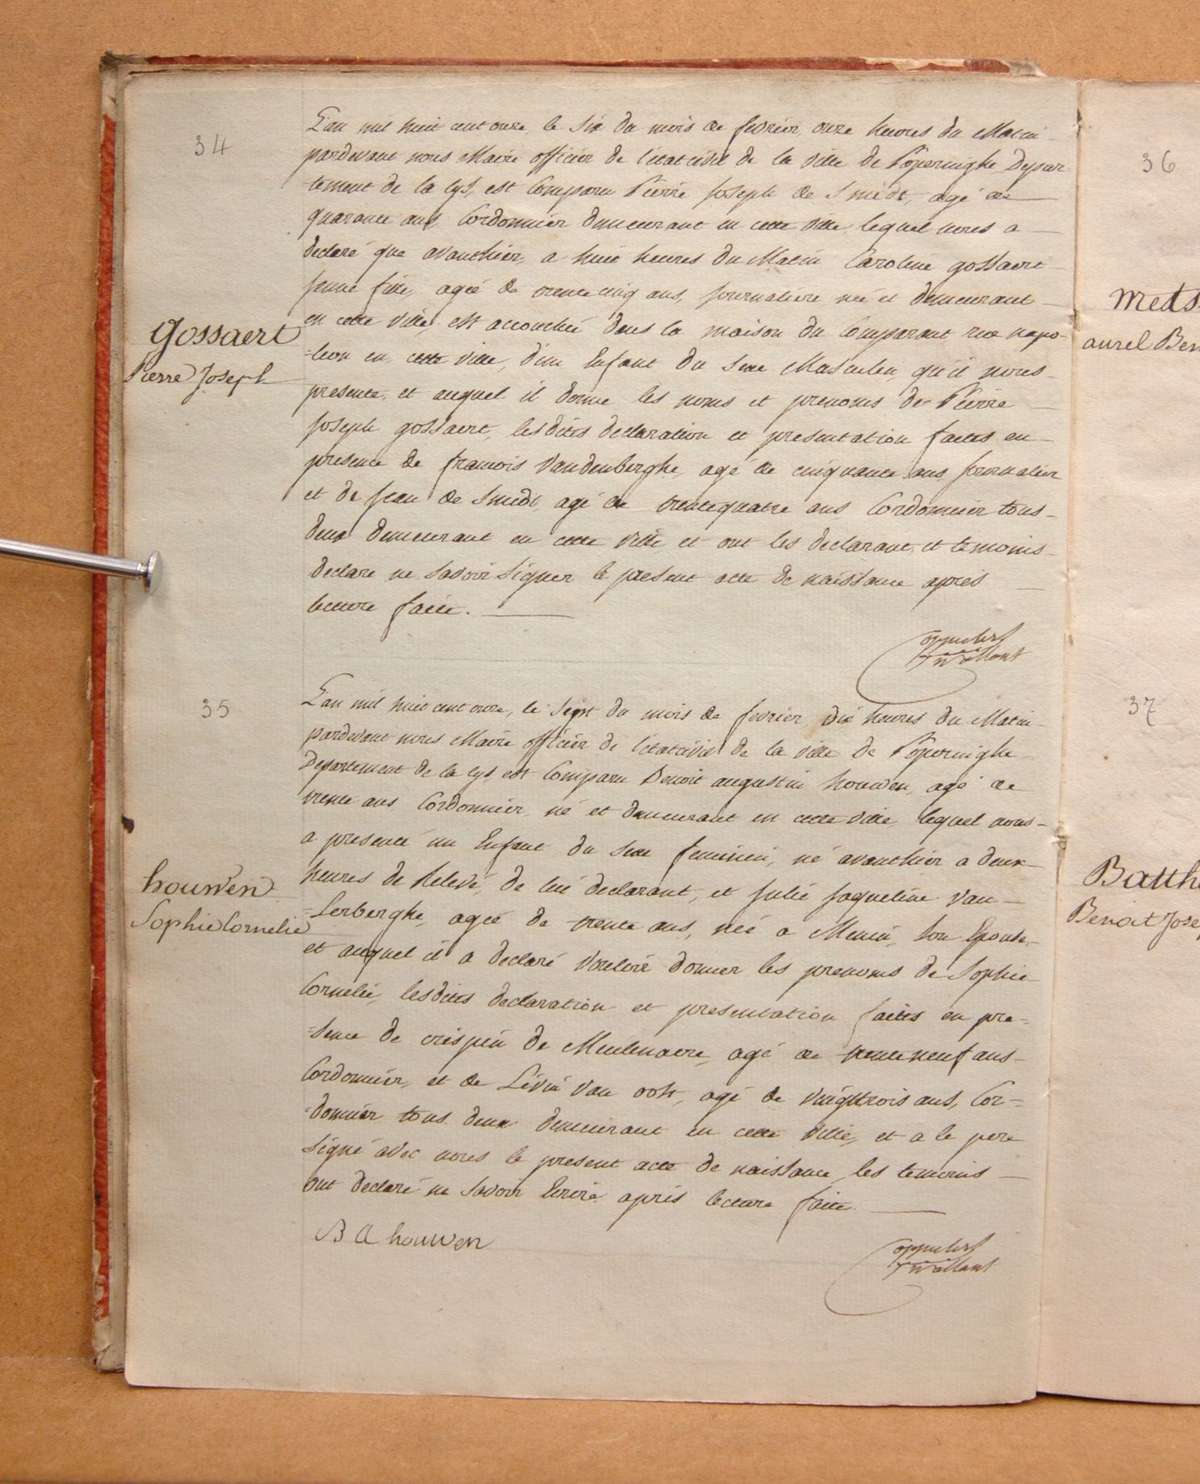 34
L'an mil huit cent onze, le six du mois de fevrier onze heures du Matin
pardevant nous Maire officier de l'etat civil de la ville de Poperinghe Depar
tement de la Lys, est Comparu Pierre Joseph de Smedt, agé de
quarante ans Cordonnier demeurant en cette ville lequel nous a
declaré que avanthier, a huit heures du Matin Caroline gossaert
jeune fille, ageé de trente cinq ans, journaliere neé et demeurant
en cette ville est accouchée dans la maison du Comparant, rue napo-
=leon en cette ville, d'un Enfant du sexe Masculin, qu'il nous
presente, et auquel il donne les noms et prenoms de Pierre
Joseph gossaert, lesdites declaration et presentation faites en
presence de francois Vandenberghe, agé de cinquante ans journalier
et de Jean de Smedt agé de trentequatre ans Cordonnier tous-
deux demeurant en cette ville et ont les declarant et temoins
declaré ne savoir signer le present acte de naissance après
lecture faite.
gossaert
Pierre Joseph
35
L'an mil huit cent onze, le sept du mois de fevrier dix heures du Matin
pardevant nous Maire officier de l'etat civil de la ville de Poperinghe
Departement de la Lys est Comparu Benoit augustin houwen, agé de
trente ans Cordonnier, né et demeurant en cette ville, lequel nous
a presenté un Enfant du sexe feminin, né avanthier a deux
heures de Relevé, de lui declarant, et Julie Jaqueline van
=Lerberghe, ageé de trente ans, neé a Menin, son Epouse,
et auquel il a declaré vouloir donner les prenoms de Sophie
Cornelie, lesdites declaration et presentation faites en pre=
=sence de crispin de Meulenaere, agé de trenteneuf ans
Cordonnier, et de Livin van ooh, agé de vingttrois ans, Cor=
=donnier tous deux demeurant en cette ville, et a le pere
signé avec nous le present acte de naissance les temoins
ont declaré ne savoir Ecrire après lecture faite
houwen
Sophie Cornelie
B A houwen
36
mets
aurel Ben
37
Batth
Benoit Jose